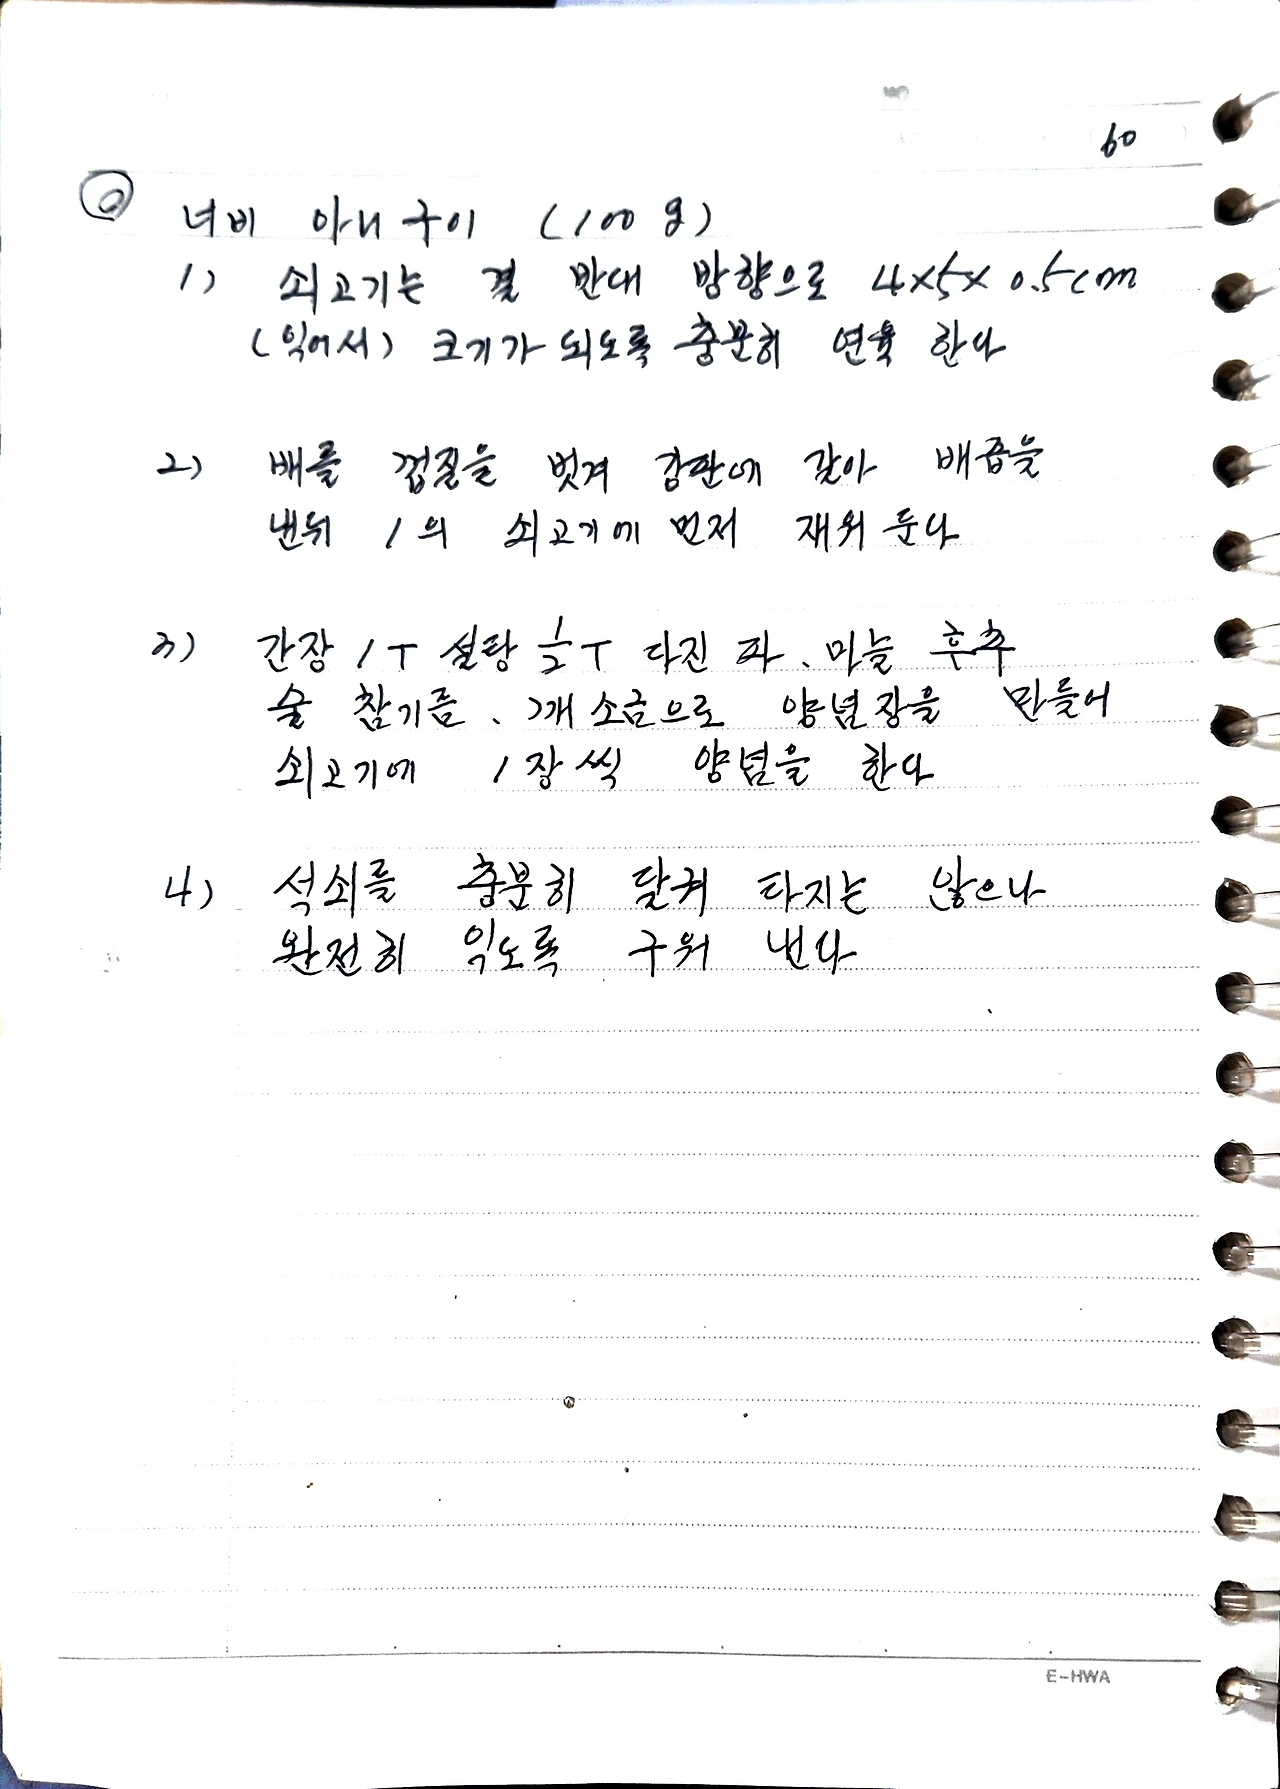 60
너비 아니 구이 (100g)
1) 쇠고기는 결 반대 방향으로 4x5x0.5cm
(익어서) 크기가 되도록 충분히 연육 한다
2) 배를 껍질을 벗겨 강판에 갈아 배즙을
낸뒤 1의 쇠고기에 먼저 재워 둔다
3) 간장 1T 설탕 1/2T 다진 파、마늘 후추
술 참기름、깨소금으로 양념장을 만들어
쇠고기에 1장씩 양념을 한다
4) 석쇠를 충분히 달궈 타지는 않으나
완전히 익도록 구워 낸다
E-HWA